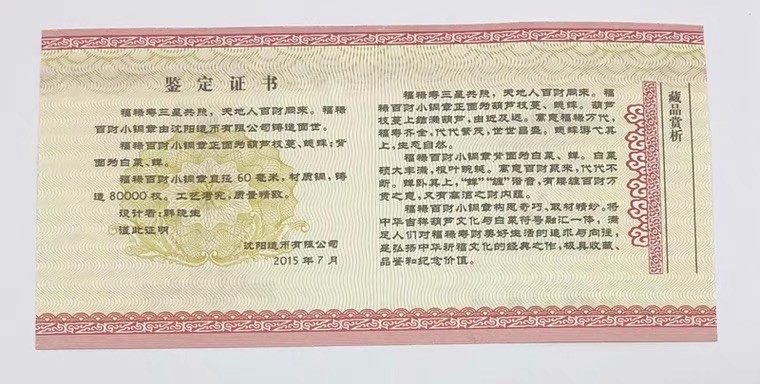 鉴定证书
福禄寿三星共照，天地人百财周来。福禄
百财小铜章由沈阳造币有限公司铸造面世。
福禄百财小铜章正面为葫芦枝蔓、蝈蝉；背
面为白菜、蝉。
福禄百财小铜章直径60毫米，材质铜，铸
造80000枚。工艺考究，质量精致。
设计者：韩晓生
谨此证明
沈阳造币有限公司
2015年7月
福禄寿三星共照，天地人百财周来。福
禄百财小铜章正面为葫芦枝蔓、蝈蝉。葫芦
枝蔓上结满葫芦，由近及远。寓意福禄万代，
福寿齐全，代代繁荣，世世昌盛。蝈蝉游弋其
上，生态自然。
福禄百财小铜章背面为白菜、蝉。白菜
硕大丰满，枝叶婉蜒。寓意百财频来，代代不
断。蝉卧其上，“蝉”“缠”谐音，有腰缠百财万
贯之意，又有高洁之财内蕴。
福禄百财小铜章构思奇巧，取材精妙。将
中华吉祥葫芦文化与白菜符号融汇一体，满
足人们对福禄寿财美好生活的追求与向往，
是弘扬中华祈福文化的经典之作，极具收藏、
品鉴和纪念价值。
藏品赏析